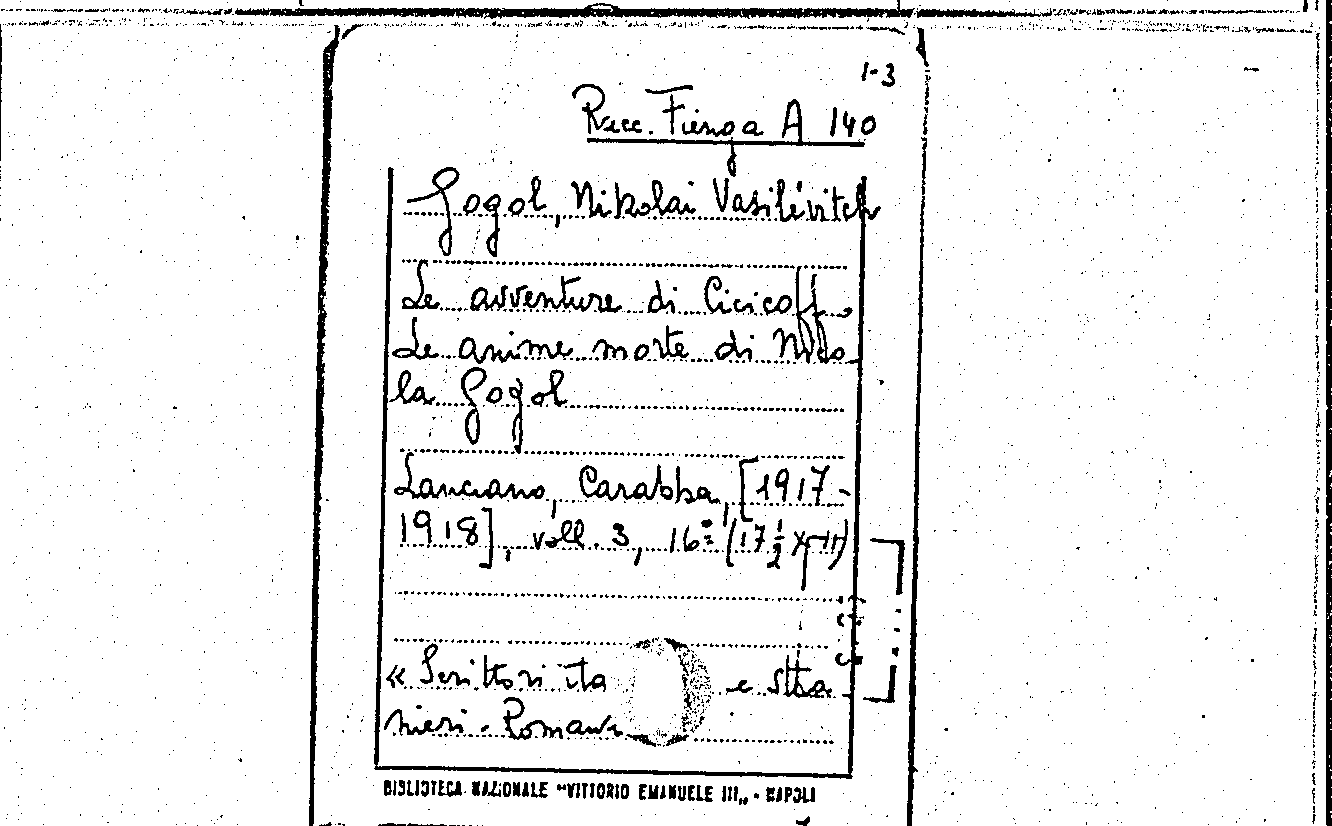 1-3
Racc. Fienga A 140
Gogol, Nikolai Vasilévitch
Le avventure di Cicicoff.
Le anime morte di Nico
la Gogol
Lanciano, Carabba, [1917-
1918], voll. 3, 16º (17½ x 11)
« Scrittori ita e stra
nieri. Roman
BIBLIOTECA NAZIONALE "VITTORIO EMANUELE III„ - NAPOLI